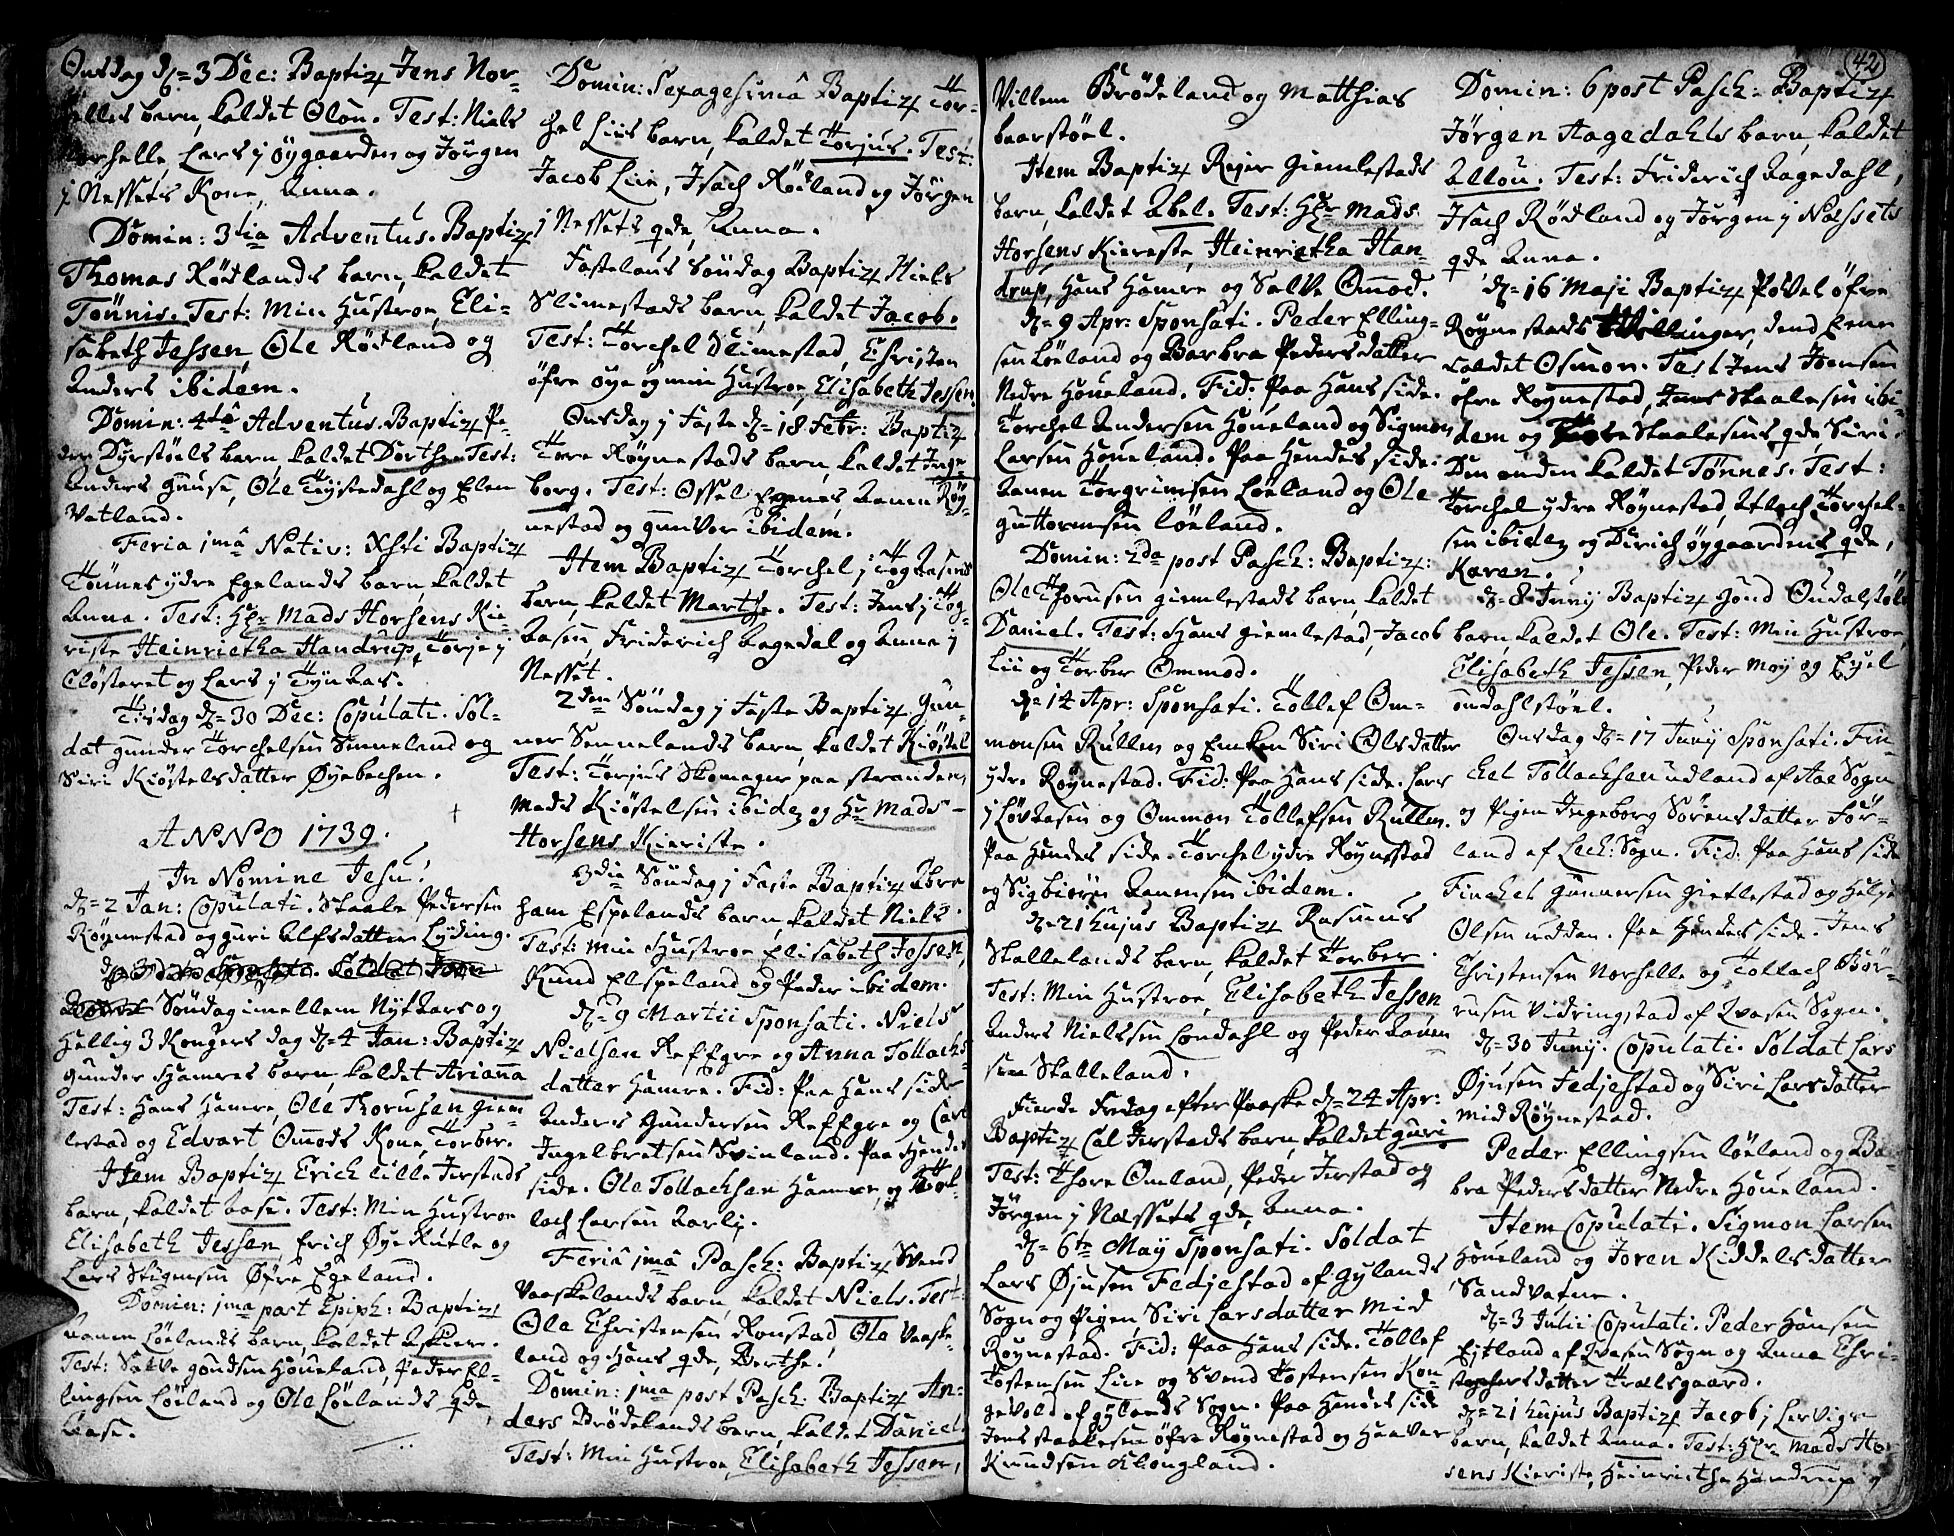 Onsdag d. 3 Dec: Baptiz. Jens Nor-
helles barn, kaldet Olou. Test: Niels
Norhelle, Lars j øygaarden og Jørgen
j Nessets Kone, Anna.
Domin: 3tia Adventus. Baptiz.
Thomas Rødlands barn, kaldet
Tønnis. Test: Min Hustroe, Eli-
sabeth Jessen, Ole Rødland og
Anders ibidem.
Domin: 4ta Adventus. Baptiz. Pe-
der Dyrstøels barn kaldet Dorthe. Test:
Anders Guuse, Ole Tystedahl og Elen
Vatland.
Feria jma Nativ: Xsti Baptiz.
Tønnes ydre Egelands barn, kaldet
Anna. Test: Hr. Mads Horsens Kie-
riste Heinrietha Handrup, Torje j
Clösteret og Lars j
Tisdag d. 30 Dec: Copulati. Sol-
dat Gunder Torchelsen Sinneland og
Siri Kiöstelsdatter Øyebechen.
ANNO 1739.
In Nomine Jesu!
d. 2 Jan: Copulati. Staale Pedersen
Røynestad og Guri Alfsdatter Lyding.
Søndag imellem Nyt Aars og
Hellig 3 Kongers dag d. 4 Jan: Baptiz.
Gunder Hamres barn, kaldet Arianna
Test: Hans Hamre, Ole Thorusen Giem-
lestad og Edvart Omods Kone, Torber.
Item Baptiz. Erich Lille Jerstads
barn, kaldet Aase. Test: Min Hustroe
Elisabeth Jessen, Erich Øye Rutle og
Lars Stigensen Øfre Egeland.
Domin: jma post Epiph: Baptiz.
Aanen Löelands barn, kaldet
Test: Salve Goudsen Houeland, Peder El-
lingsen Löeland og Ole Löelands qde,
Aase.
Domin: Sexagesima Baptiz. Tor-
chel Liis barn, kaldet Torjus. Test:
Jacob Lie, Isach Rødland og Jørgen
j Nessets qde, Anna.
Fastelauns Søndag Baptiz. Niels
Slimestads barn, kaldet Jacob.
Test: Torchel Slimestad, Christen
øfre øye og min Hustroe, Elisabeth Jessen.
Onsdag j Faste d. 18 Febr: Baptiz.
Tore Røynestads barn, kaldet Inge-
borg. Test: Ossel Egenes, Aanen Röy-
nestad og Gunvor ibidem.
Item Baptiz. Torchel j
barn, kaldet Marthe. Test: Jens j
Friderich Aagedal og Anna j
Nesset.
2den Søndag j Faste Baptiz. Gun-
ner Sennelands barn, kaldet Kiöstel
Test: Torjus Skomager paa Stranden,
Mads Kiöstelsen ibidem og Hr. Mads
Horsens Kieriste.
3dia Søndag j Faste Baptiz. Abra-
ham Espelands barn, kaldet Niels.
Test: Min Hustroe Elisabeth Jessen,
Knud Elspeland og Peder ibidem.
d. 9 Martii Sponsati. Niels
Nielsen Reffgre og Anna Tollachs-
datter Hamre. Fid: Paa Hans side
Anders Gundersen Reffgre og Carl
Ingelbretsen Svinland. Paa Hendes
side. Ole Tollachsen Hamre, og Tol-
lach Larsen Aarli.
Feria jma Pasch: Baptiz. Svend
Vaaskelands barn, kaldet Niels. Test:
Ola Christensen Ronstad Ola Vaaske-
land og Hans qde, Berthe.
Domin: jma post Pasch: Baptiz. An-
ders Brödelands barn, kaldet Daniel.
Test: Min Hustroe, Elisabeth Jessen,
42
Villem Brödeland og Matthias
baarstøel.
Item Baptiz. Rejer Giemlestads
barn, kaldet Abel. Test: Hr. Mads
Horsens Kiereste, Heinrietha Han-
drup, Hans Hamre og Salve Omod.
d. 9 Apr: Sponsati. Peder Elling-
sen Löeland og Barbra Pedersdatter
Nedre Houeland. Fid: Paa Hans side.
Torchel Andersen Houeland og Sigmon
Larsen Houeland. Paa Hendes side.
Aanen Torgrimsen Löeland og Ole
Guttormsen löeland.
Domin: 2da post Pasch: Baptiz:
Ole Thorusen Giemlestads barn, kaldet
Daniel. Test: Hans Giemlestad, Jacob
Lii og Torber Ommod.
d. 14 Apr: Sponsati. Tollef Om-
monsen Rullen og Enken Siri Olsdatter
ydre Røynestad. Fid: Paa Hans side. Lars
j Løvaasen og Ommon Tollefsen Rullen.
Paa Hendes side. Torchel ydre Røynestad
og Sigbiørn Aanensen ibidem.
d. 21 hujus Baptiz. Rasmus
Stallelands barn, kaldet Torber.
Test: Min Hustroe, Elisabeth Jessen
Anders Nielssen Londahl og Peder Aanen-
sen Stalleland.
Fierde Fredag efter Paaske d. 24 Apr:
Baptiz. Cal Jerstads barn, kaldet Guri
Test: Thore Omland, Peder Jerstad og
Jørgen j Næssets qde, Anna.
d. 6te May Sponsati. Soldat
Lars Øjusen Fedjestad af Gylands
Sogn og Pigen Siri Larsdatter Mid
Røynestad. Fid: Paa Hans side. Tollef
Tostensen Lie og Svend Tostensen Kon-
gevold af Gylands Sogn. Paa Hendes side
Jens Staalesen øfre Røynestad og Haaver
Knudsen Klongland.
Domin: 6 post Pasch: Baptiz.
Jørgen Aagedahls barn, kaldet
Allou. Test: Friderich Aagedahl,
Isach Rødland og Jørgen j Næssets
qde Anna.
d. 16 Maji Baptiz. Povel öfre
Røynestads Tvillinger, dend Eene
kaldet Osmon. Test Jens Joensen
øfre Røynestad, Staalesen ibi-
dem og Tore Staalesens qde Siri.
Den anden kaldet Tønnes. Test:
Torchel ydre Røynestad, Torchel-
sen ibidem og Dirich øygaardens qde,
Karen.
d. 8 Junij Baptiz. Goud Oudalstøls
barn, kaldet Ole. Test: Min Hustroe
Elisabeth Jessen, Peder Moy og Eyel
oudahlstøel.
Onsdag d. 17 Junij Sponsati. Fin-
chel Tollachsen udland af Aae Sogn
og Pigen Ingeborg Sörensdatter För-
land af Lech: Sogn. Fid: Paa Hans side
Finchel Gunnersen Gietlestad og Helje
Olsen Paa Hendes side. Jens
Christensen Norhelle og Tollach Bör-
rusen Vidringstad af Qvasen Sogn.
d. 30 Junij. Copulati. Soldat Lars
Øjusen Fedjestad og Siri Larsdatter
mid Røynestad.
Peder Ellingsen löeland og Bar-
bra Pedersdatter Nedre Houeland.
Item Copulati. Sigmon Larsen
Houeland og Joren Kiddelsdatter
Sandvatne.
d. 3 Julii Copulati. Peder Hansen
Eitland af Qvasen Sogn og Anna Chri-
stophersdatter Trælsgaard.
d. 21 hujus Baptiz. Jacob j Lervigs
barn, kaldet Anna. Test: Hr. Mads Hor-
sens Kieriste, Heinrietha Handrup,